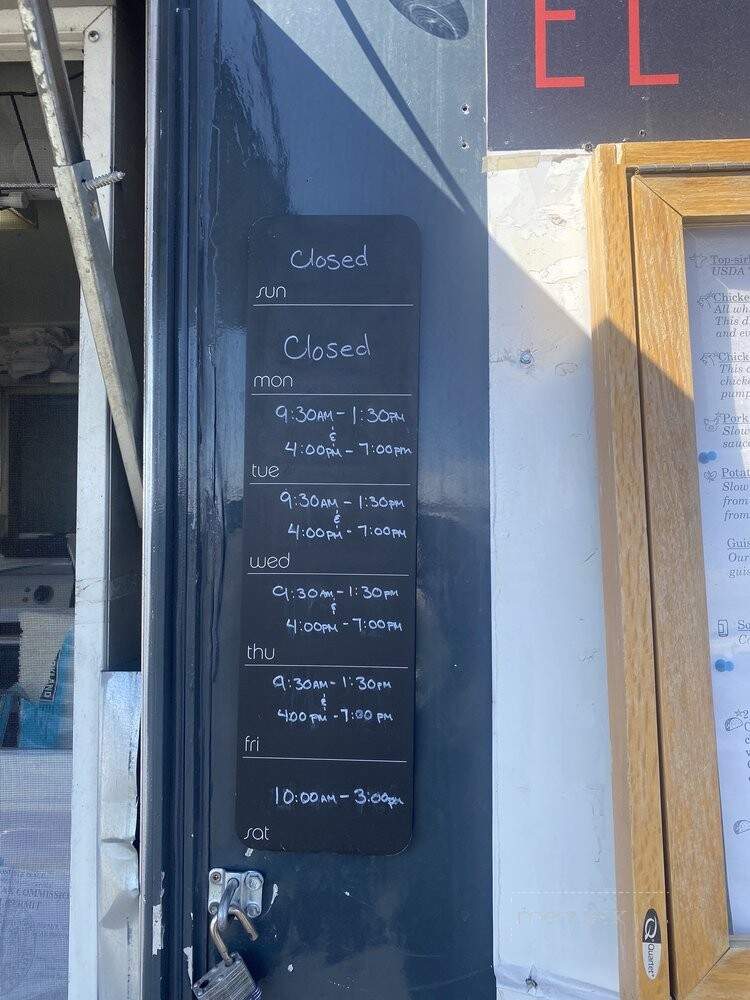 EL
Closed
sun
Closed
mon
9:30AM - 1:30PM
&
4:00PM - 7:00PM
tue
9:30AM - 1:30PM
&
4:00PM - 7:00PM
wed
9:30AM - 1:30PM
&
4:00PM - 7:00PM
thu
9:30AM - 1:30PM
&
4:00PM - 7:00PM
fri
10:00AM - 3:00PM
sat
USDA
Chicke
All wh
This d
and ev
Chick
This c
chick
pump
Pork
Slow
sauc
Potat
Slow
from
from
Guis
Our
guis
Quartet
COMMISSION